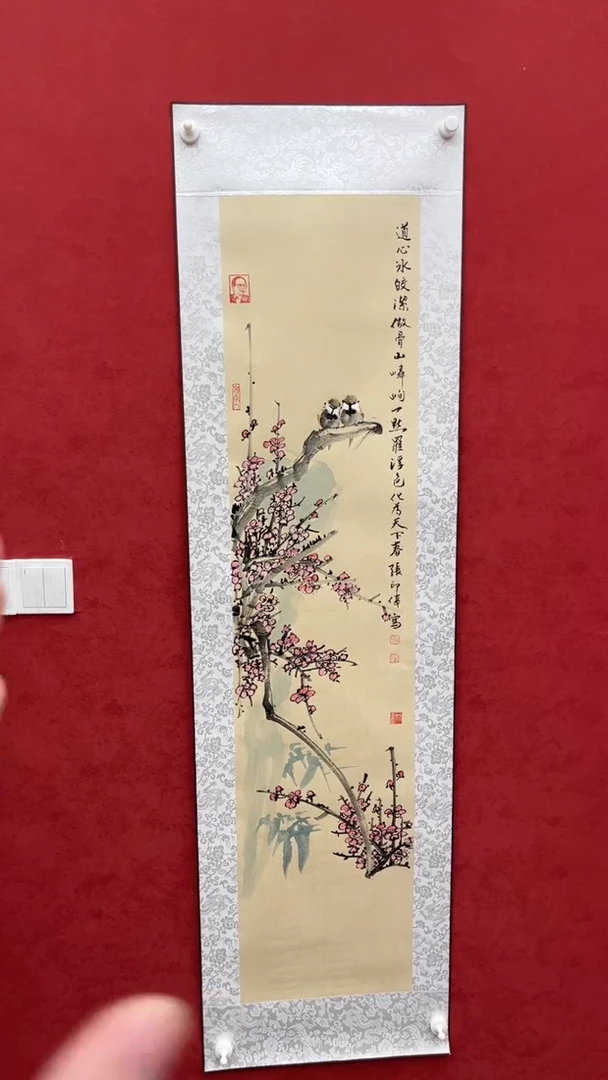 道心冰皎潔傲骨山嶙峋一點羅浮色化為天下春張印偉寫